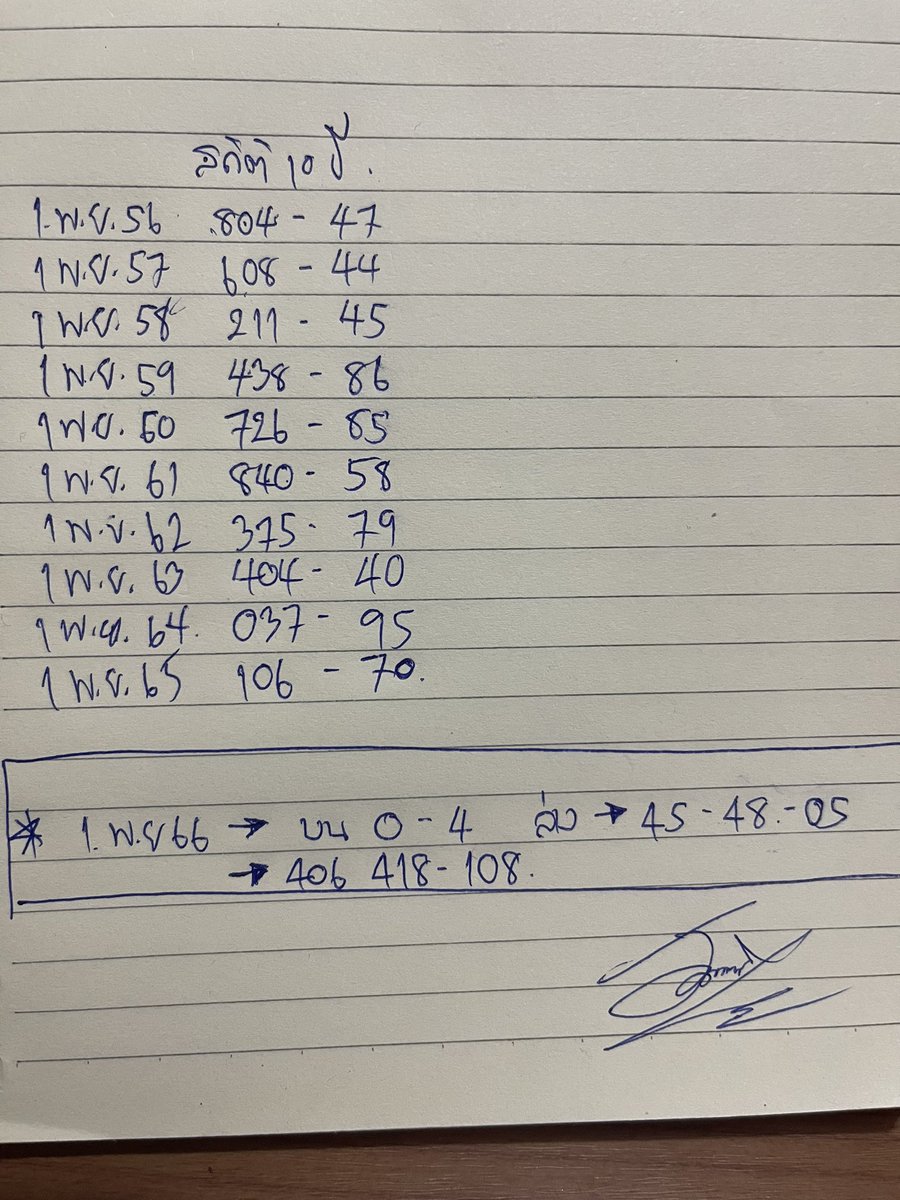 สถิติ 10 ปี.
1.พ.ย.56 804 - 47
1 พ.ย.57 608 - 44
1 พ.ย. 58 211 - 45
1 พ.ย. 59 438 - 86
1 พย. 60 726 - 85
1 พ.ย. 61 840 - 58
1 พ.ย. 62 375 - 79
1 พ.ย. 63 404 - 40
1 พ.ย. 64. 037 - 95
1 พ.ย. 65 106 - 70.
* 1. พ.ย 66 → บน 0 - 4 ล่าง → 45 - 48. - 05
→ 406 418 - 108.